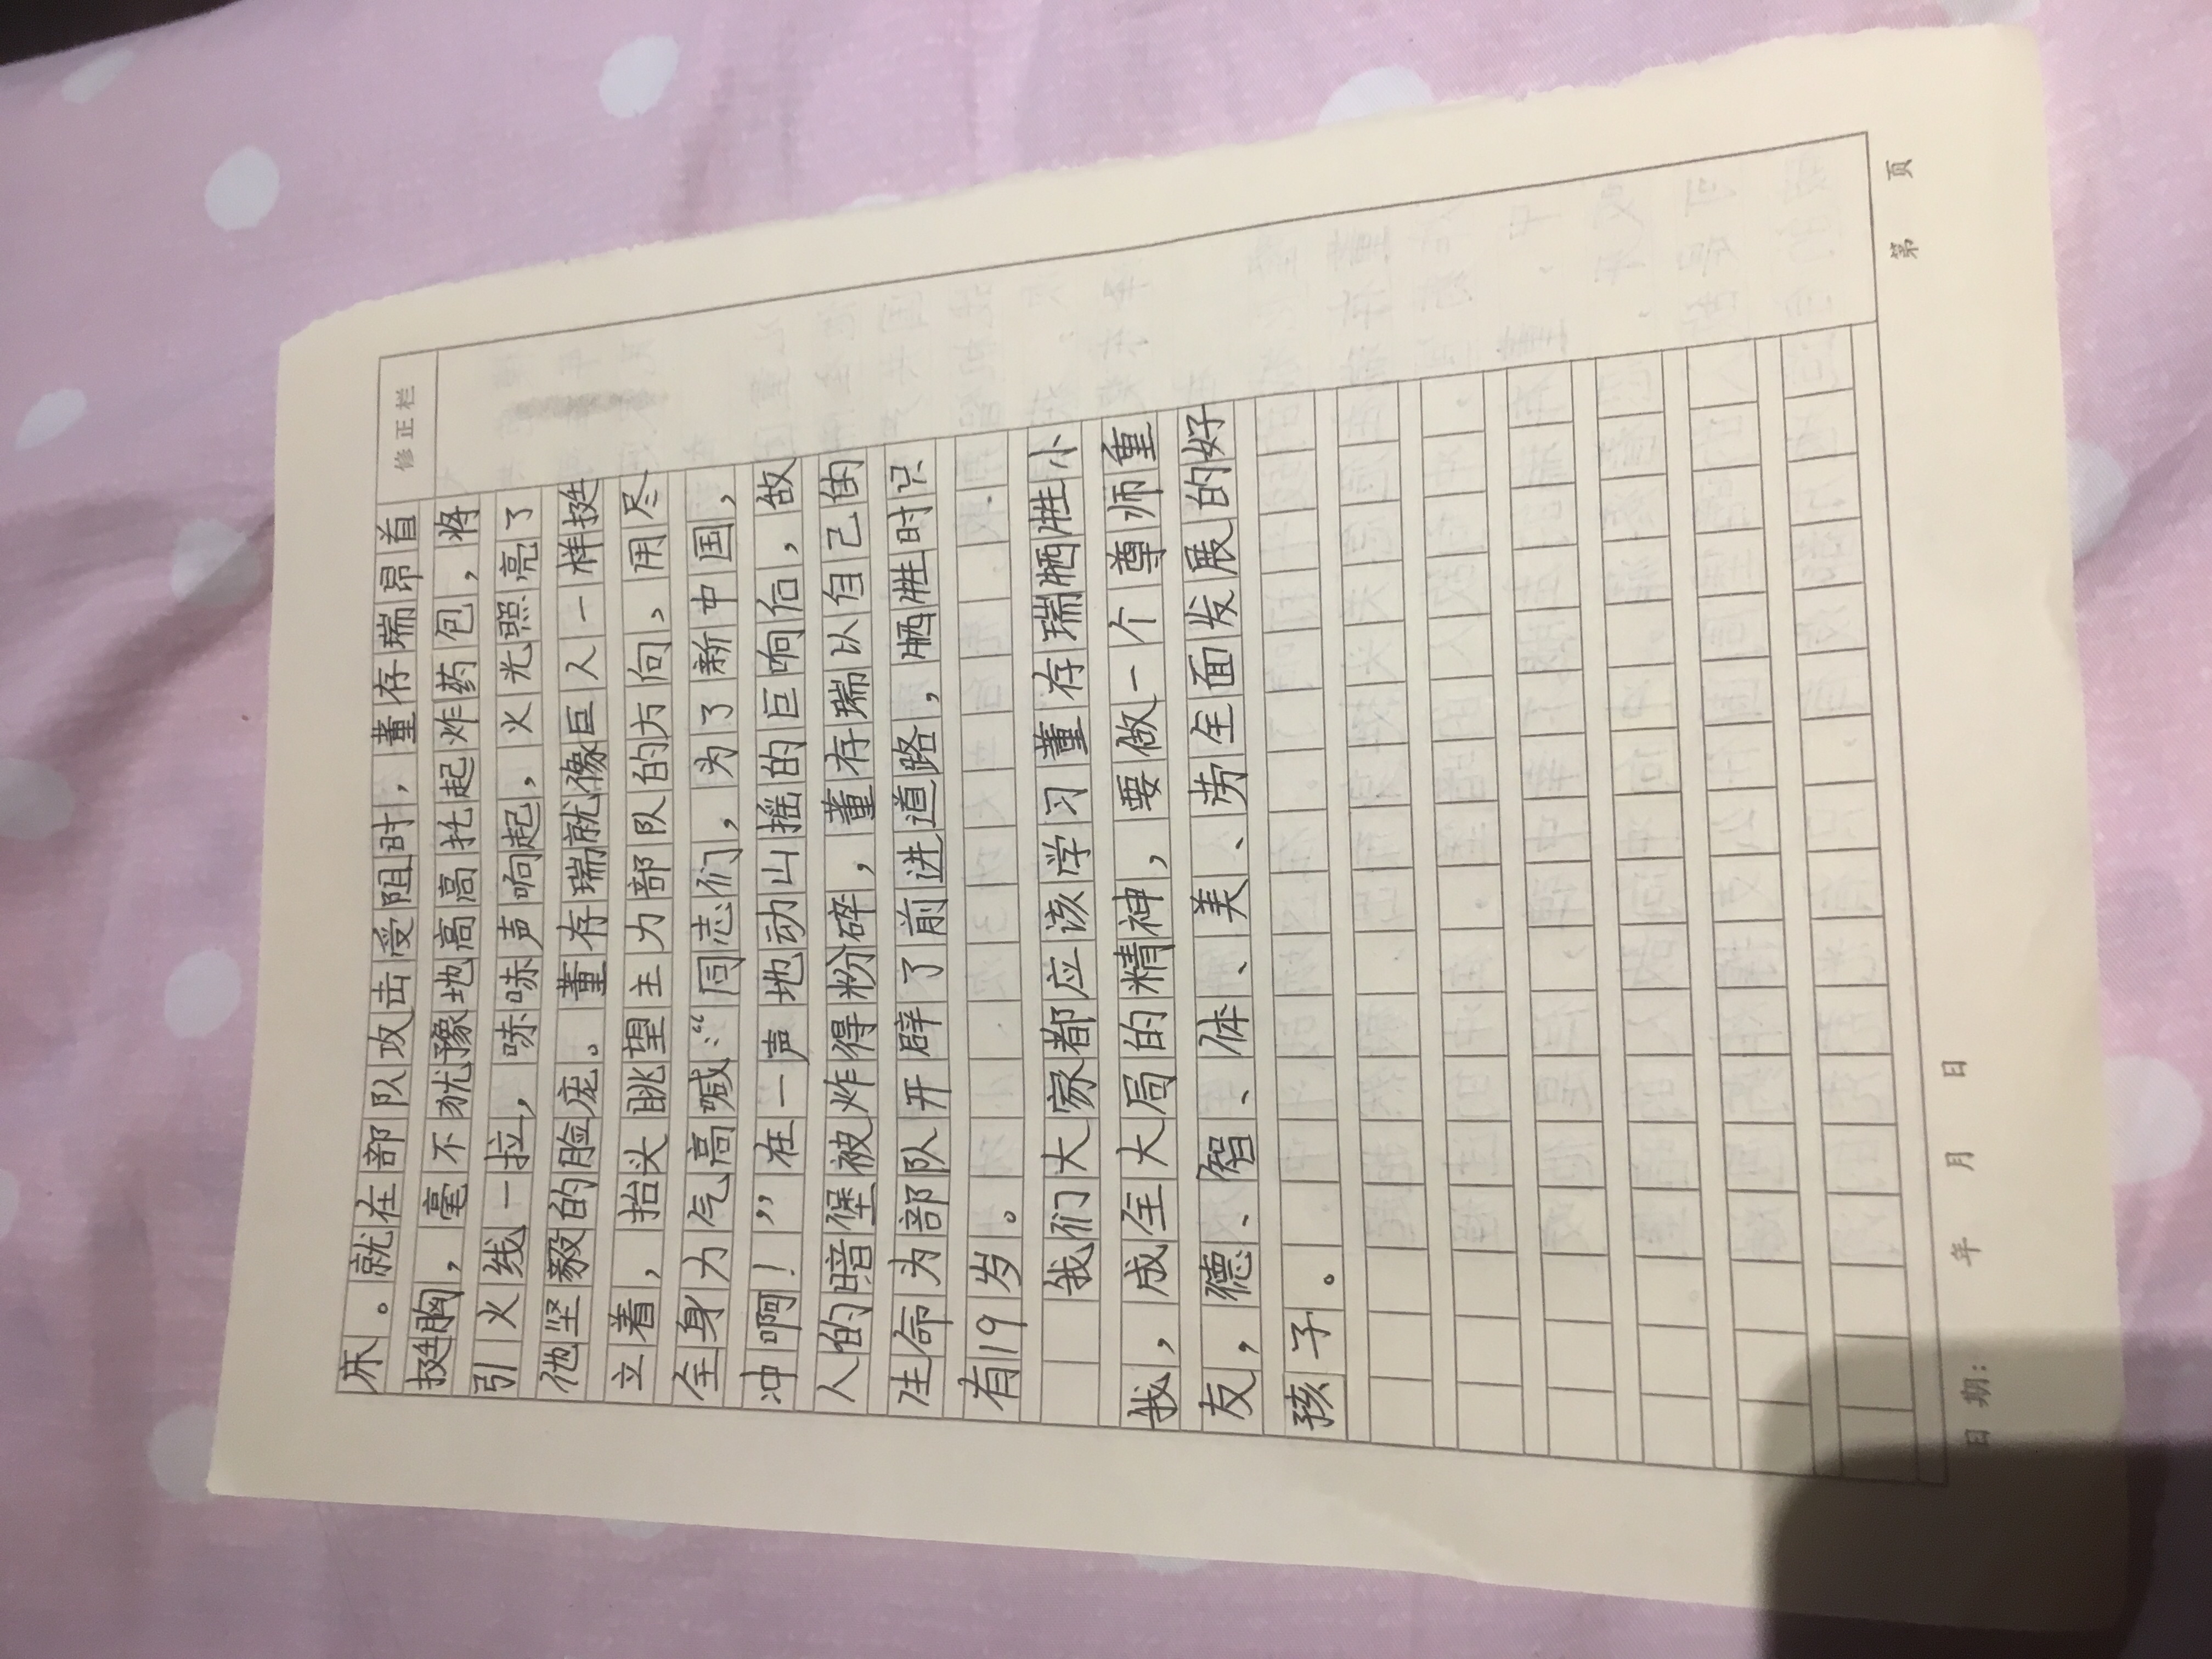 修正栏
东。就在部队攻击受阻时，董存瑞昂首
挺胸，毫不犹豫地高高托起炸药包，将
引火线一拉，哧哧声响起，火光照亮了
他坚毅的脸庞。董存瑞就像巨人一样挺
立着，抬头眺望主力部队的方向，用尽
全身力气高喊：“同志们，为了新中国，
冲啊！”在一声地动山摇的巨响后，敌
人的暗堡被炸得粉碎，董存瑞以自己的
生命为部队开辟了前进道路，牺牲时只
有19岁。
我们大家都应该学习董存瑞牺牲小
我，成全大局的精神，要做一个尊师重
友，德、智、体、美、劳全面发展的好
孩子。
日期： 年 月 日 第 页